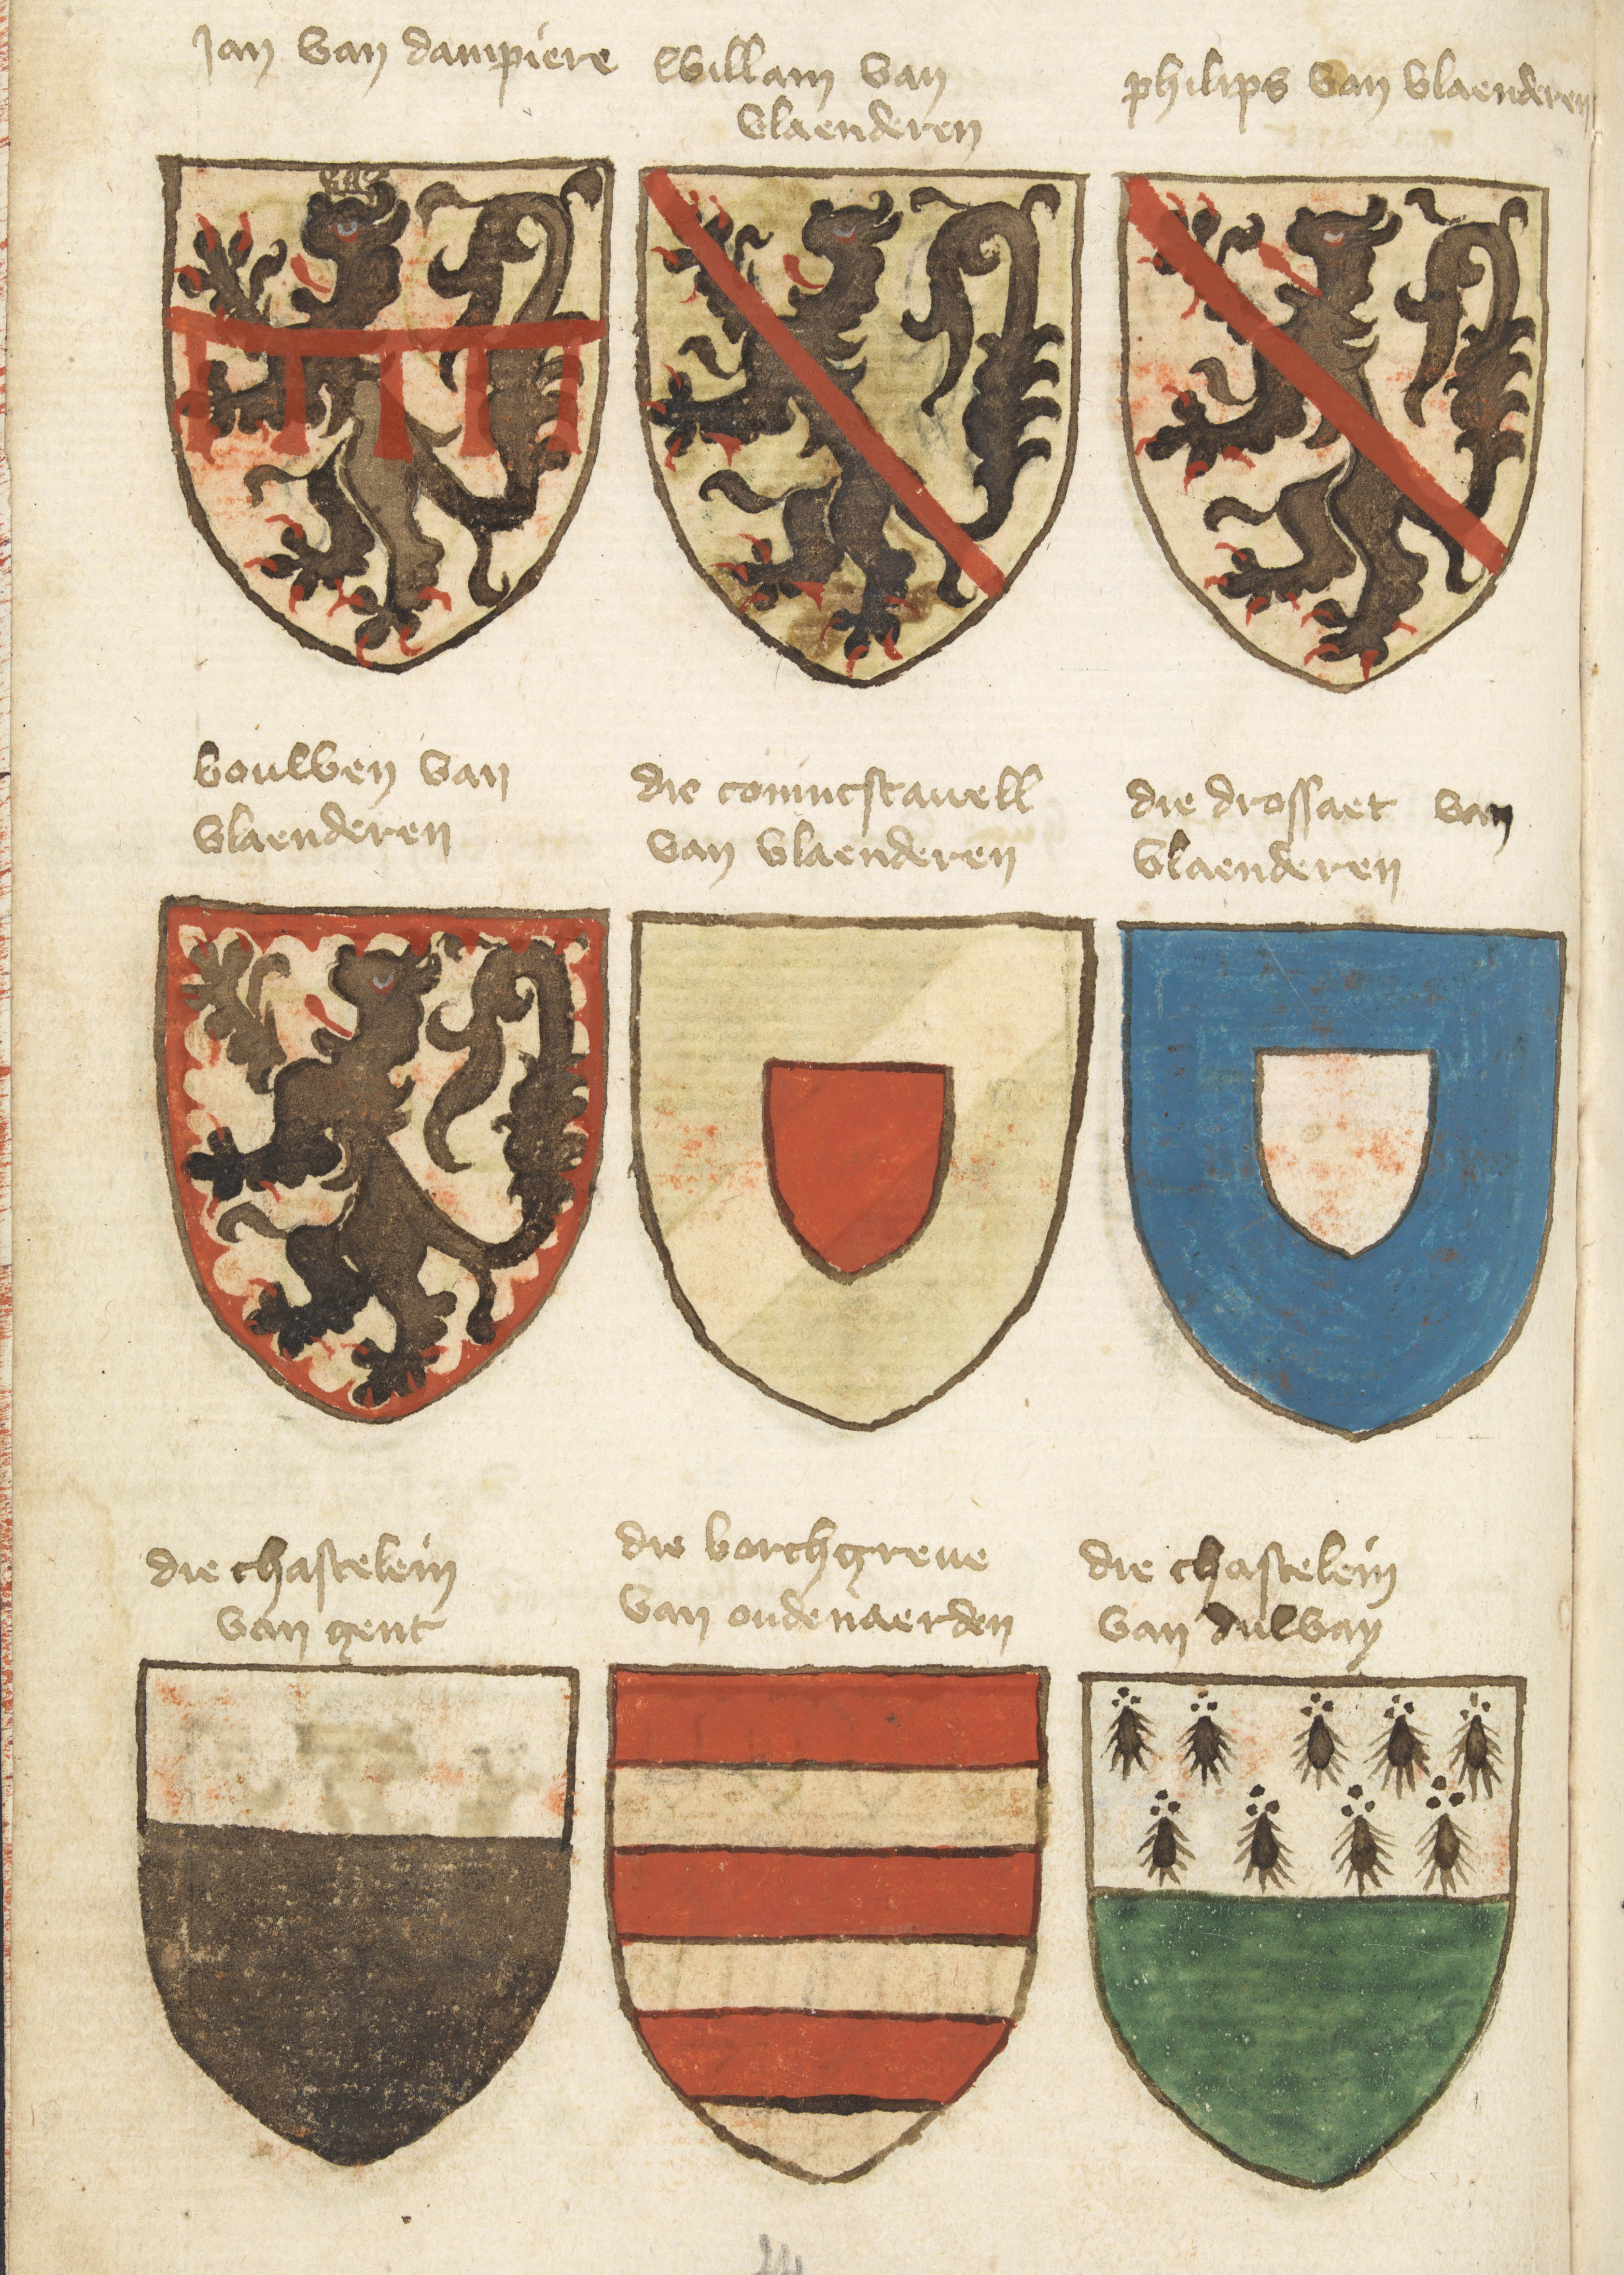 Jan van dampiere
Willam van
vlaenderen
philips van vlaenderen
bouwen van
vlaenderen
die conincstauell
van vlaenderen
die drossaet van
vlaenderen
die chastelein
van gent
die borchgreue
van oudenaerden
die chastelein
van duway